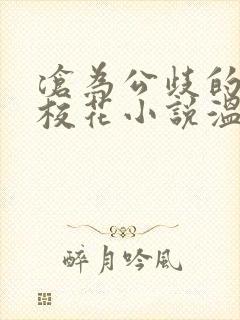 滄為公歧的
校花小說溫
醉月吟風